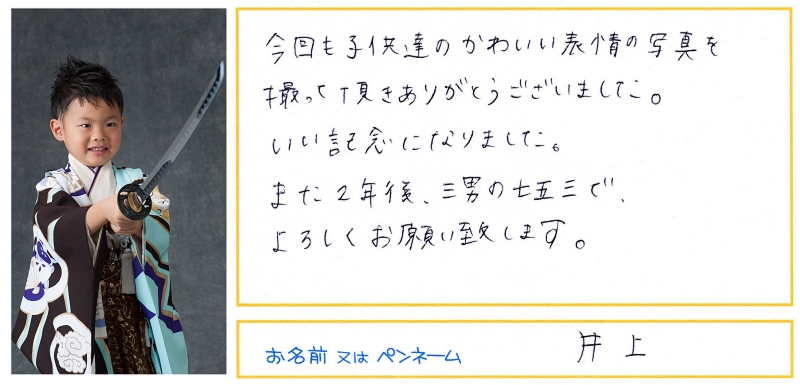 今回も子供達のかわいい表情の写真を
撮って頂きありがとうございました。
いい記念になりました。
また2年後、三男の七五三で、
よろしくお願い致します。
お名前 又は ペンネーム 井上